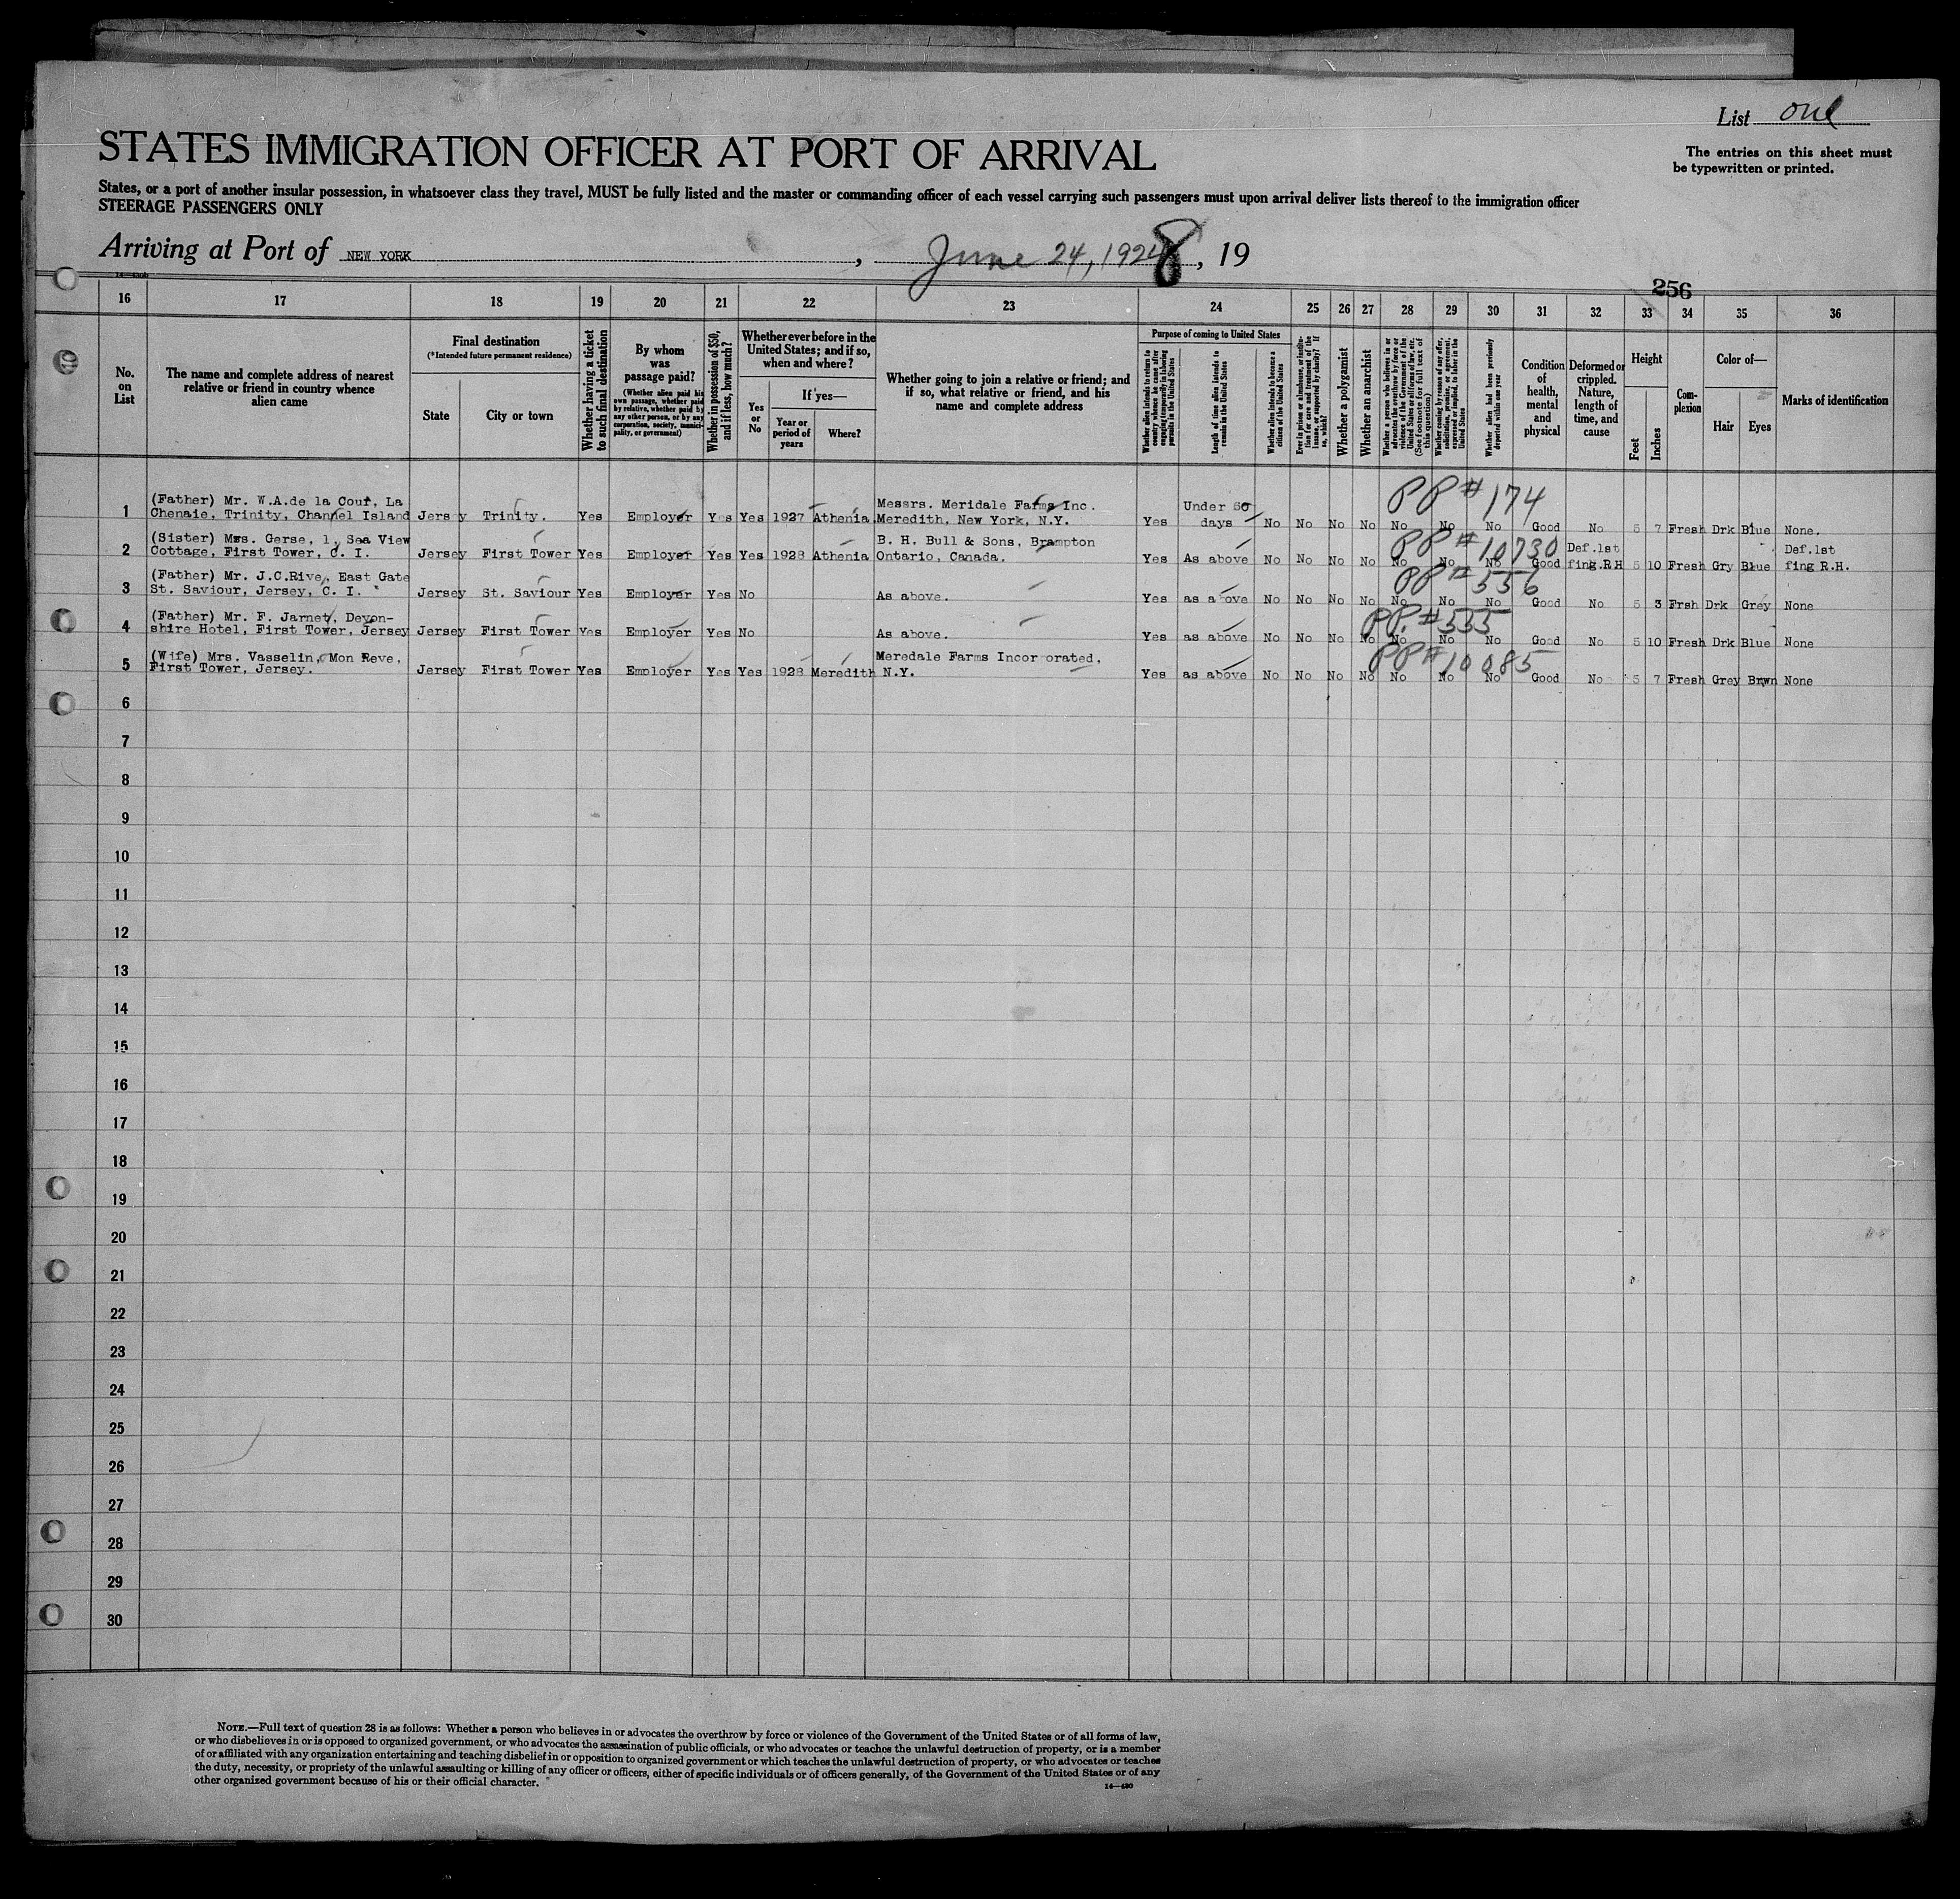 List one
The entries on this sheet must
be typewritten or printed.
STATES IMMIGRATION OFFICER AT PORT OF ARRIVAL
States, or a port of another insular possession, in whatsoever class they travel, MUST be fully listed and the master or commanding officer of each vessel carrying such passengers must upon arrival deliver lists thereof to the immigration officer
STEERAGE PASSENGERS ONLY
Arriving at Port of NEW YORK, June 24, 1928, 19
256
16 17 18 19 20 21 22 23 24 25 26 27 28 29 30 31 32 33 34 35 36
No.
on
List
The name and complete address of nearest
relative or friend in country whence
alien came
Final destination
(*Intended future permanent residence)
State
City or town
Whether having a ticket
to such final destination
By whom
was
passage paid?
(Whether alien paid his
own passage, whether paid
by relative, whether paid by
any other person, or by any
corporation, society, munici-
pality, or government)
Whether in possession of $50,
and if less, how much?
Whether ever before in the
United States; and if so,
when and where?
Yes
or
No
If yes—
Year or
period of
years
Where?
Whether going to join a relative or friend; and
if so, what relative or friend, and his
name and complete address
Purpose of coming to United States
Whether alien intends to return to
country whence he came after
engaging temporarily in laboring
pursuits in the United States
Length of time alien intends to
remain in the United States
Whether alien intends to become a
citizen of the United States
Ever in prison or almshouse, or institu-
tion for care and treatment of the
insane, or supported by charity? If
so, which?
Whether a polygamist
Whether an anarchist
Whether a person who believes in or
advocates the overthrow by force or
violence of the Government of the
United States or all forms of law, etc.
(See footnote for full text of
this question)
Whether coming by reason of any offer,
solicitation, promise, or agreement,
expressed or implied, to labor in the
United States
Whether alien had been previously
deported within one year
Condition
of
health,
mental
and
physical
Deformed or
crippled.
Nature,
length of
time, and
cause
Height
Feet
Inches
Com-
plexion
Color of—
Hair
Eyes
Marks of identification
PP# 174
1 (Father) Mr. W.A.de la Cour, La
Chenaie, Trinity, Channel Island Jersey Trinity. Yes Employer Yes Yes 1927 Athenia Messrs. Meridale Farms Inc.
Meredith, New York, N.Y. Yes Under 60
days No No No No No No No Good No 5 7 Fresh Drk Blue None.
PP# 10730
2 (Sister) Mws. Gerse, 1, Sea View
Cottage, First Tower, C. I. Jersey First Tower Yes Employer Yes Yes 1928 Athenia B. H. Bull & Sons, Brampton
Ontario, Canada. Yes As above No No No No No No No Good Def.1st
fing.RH 5 10 Fresh Gry Blue Def.1st
fing R.H.
PP# 556
3 (Father) Mr. J.C.Rive, East Gate
St. Saviour, Jersey, C. I. Jersey St. Saviour Yes Employer Yes No As above. Yes as above No No No No No No No Good No 5 3 Frsh Drk Grey None
PP. # 535
4 (Father) Mr. F. Jarnet, Devon-
shire Hotel, First Tower, Jersey Jersey First Tower Yes Employer Yes No As above. Yes as above No No No No No No No Good No 5 10 Fresh Drk Blue None
PP# 10085
5 (Wife) Mrs. Vasselin, Mon Reve,
First Tower, Jersey. Jersey First Tower Yes Employer Yes Yes 1928 Meredith Meredale Farms Incor orated,
N.Y. Yes as above No No No No No No No Good No 5 7 Fresh Grey Brwn None
6
7
8
9
10
11
12
13
14
15
16
17
18
19
20
21
22
23
24
25
26
27
28
29
30
NOTE.—Full text of question 28 is as follows: Whether a person who believes in or advocates the overthrow by force or violence of the Government of the United States or of all forms of law,
or who disbelieves in or is opposed to organized government, or who advocates the assassination of public officials, or who advocates or teaches the unlawful destruction of property, or is a member
of or affiliated with any organization entertaining and teaching disbelief in or opposition to organized government or which teaches the unlawful destruction of property, or who advocates or teaches
the duty, necessity, or propriety of the unlawful assaulting or killing of any officer or officers, either of specific individuals or of officers generally, of the Government of the United States or of any
other organized government because of his or their official character.
14—430